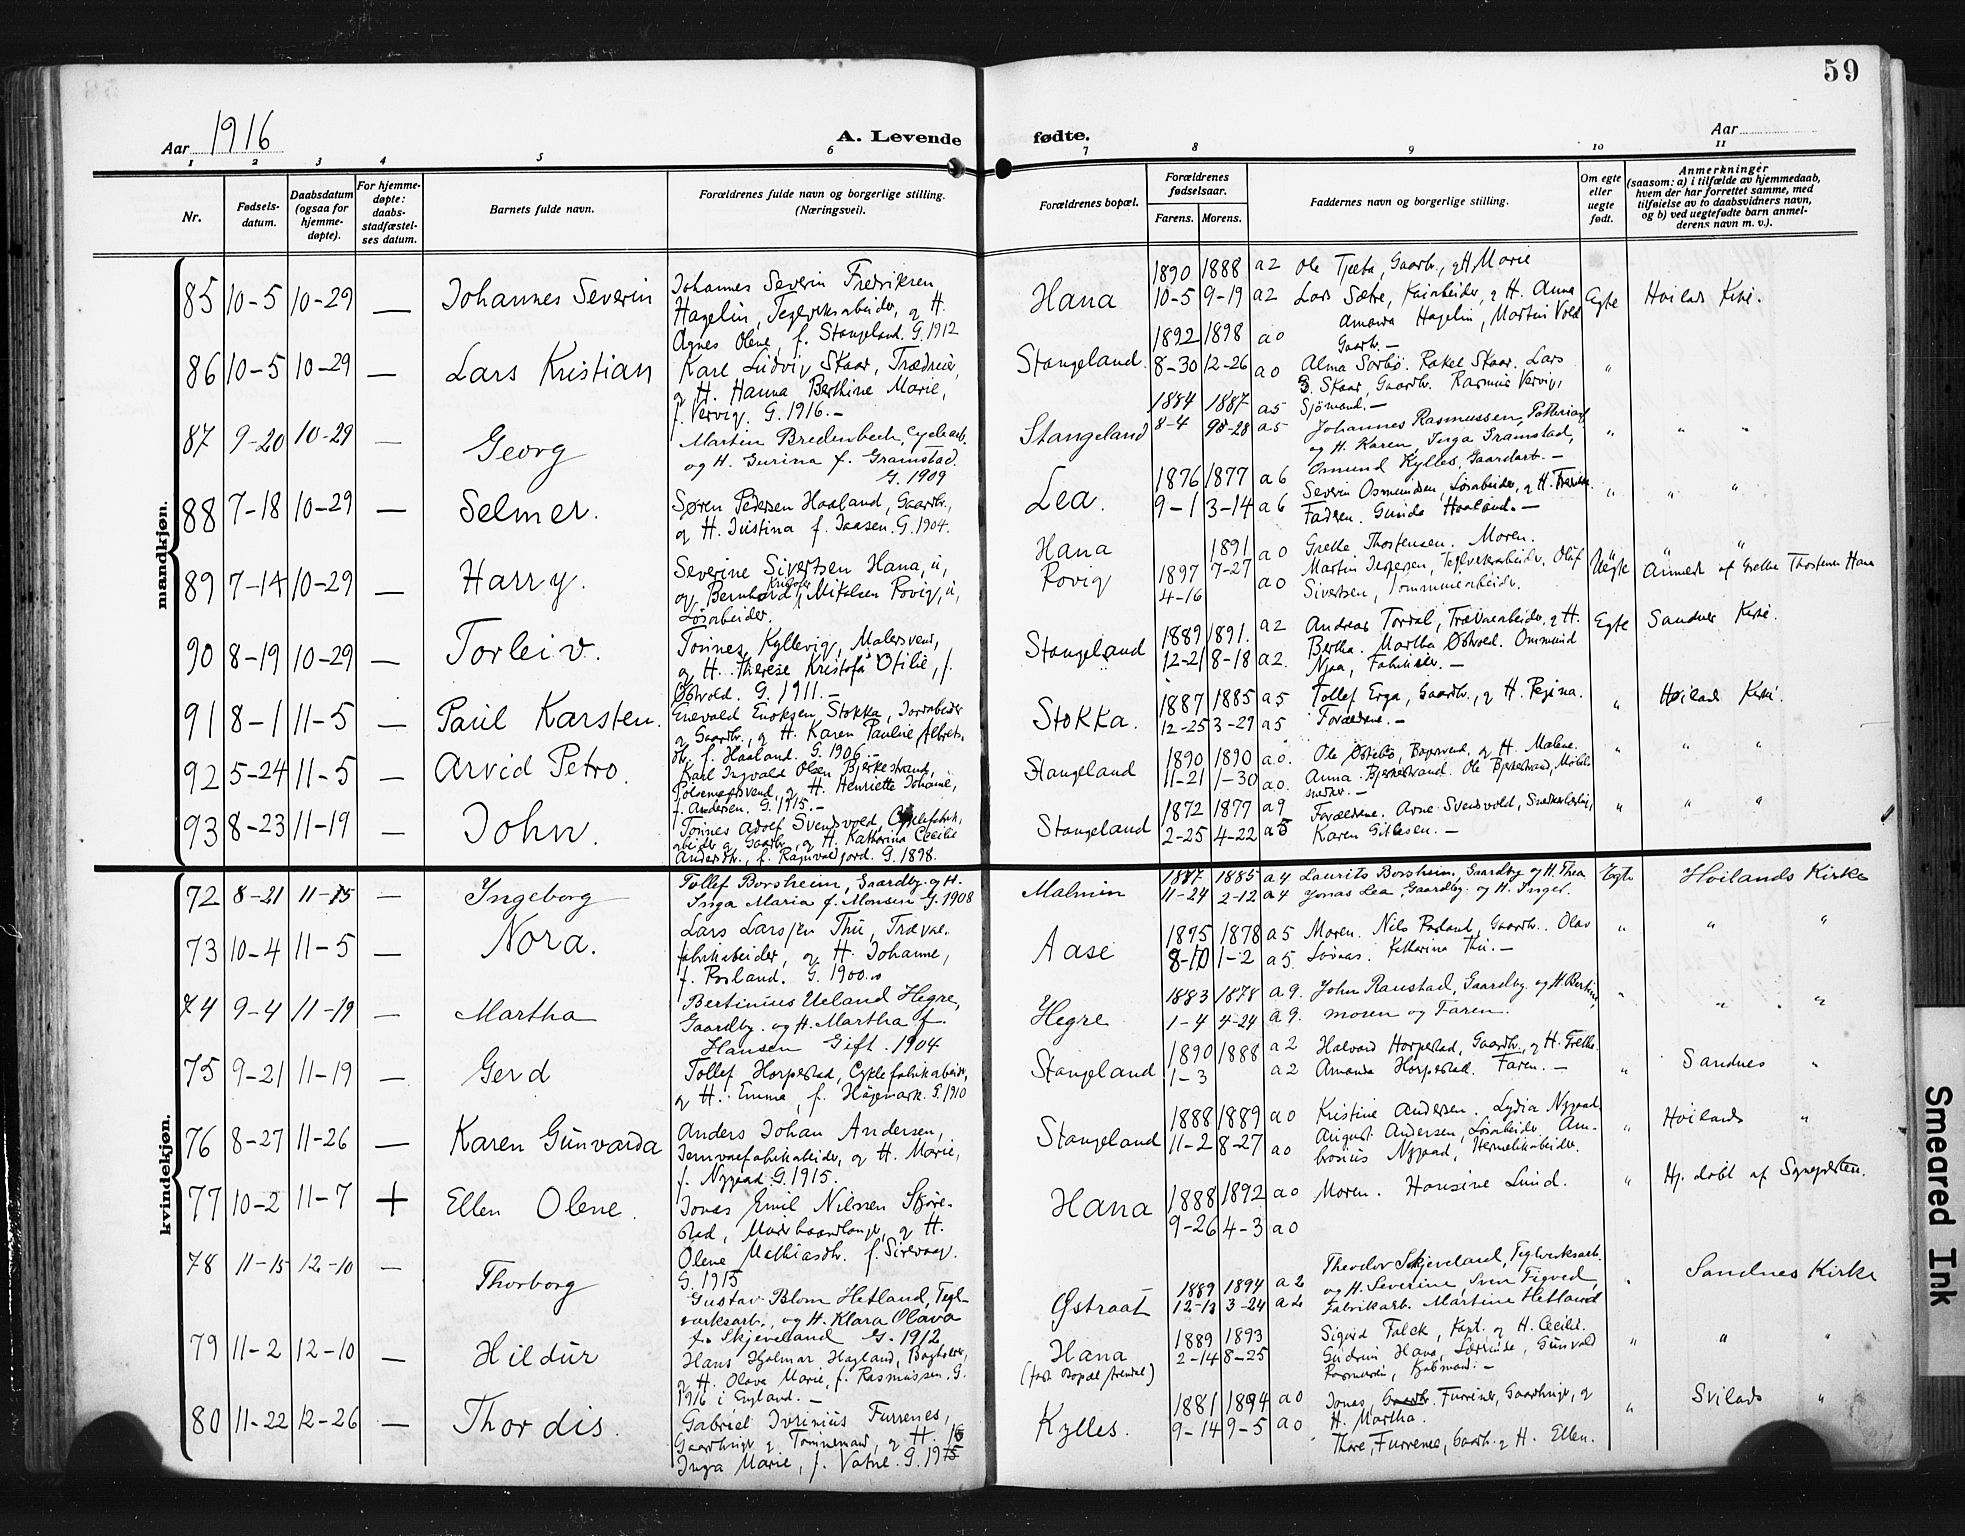 59
Aar 1916
A. Levende
fødte.
Aar
1 2 3 4 5 6 7 8 9 10 11
Nr.
Fødsels-
datum.
Daabsdatum
(ogsaa for
hjemme-
døpte).
For hjemme-
døpte:
daabs-
stadfæstel-
ses datum.
Barnets fulde navn.
Forældrenes fulde navn og borgerlige stilling.
(Næringsvei).
Forældrenes bopæl.
Forældrenes
fødselsaar.
Farens. Morens.
Faddernes navn og borgerlige stilling.
Om egte
eller
uegte
født.
Anmerkninger
(saasom: a) i tilfælde av hjemmedaab,
hvem der har forrettet samme, med
tilføielse av to daabsvidners navn,
og b) ved uegtefødte barn anmel-
derens navn m. v.).
mandkjøn.
85 10-5 10-29 — Johannes Severin
Johannes Severin Fredriksen
Hagelin, Teglverksarbeider, og H.
Agnes Olene, f. Stangeland. G. 1912
Hana
1890 1888 a2 Ole Tjeeta, Gaardbr., og H. Marie
10-5 9-19 a2 Lars Sætre, H. Anna Egte Høilands Kirke.
Amanda Hagelin, Martin Vold
Gaardb. —
86 10-5 10-29 — Lars Kristian
Karl Ludvig Skaar, Trædreier,
og H. Hanna Berthine Marie,
f. Vervig. G. 1916. —
Stangeland
1892 1898 a0
8-30 12-26 a0 Alma Sørbø. Rakel Skaar. Lars "
Skaar, Gaardb. Rasmus Vervig,
Sjömand. —
87 9-20 10-29 — Georg
Martin Bredenbech, Cyclearb.
og H. Gurina f. Gramstad.
G. 1909
Stangeland
1884 1887 a5 Johannes Rasmussen,
8-4 28 a5 og H. Karen, Inga Gramstad, " " "
Osmund Kylles, Gaardarb. —
88 7-18 10-29 — Selmer.
Søren Pedersen Haaland, Gaardbr.,
og H. Justina f. Jaasen. G. 1904.
Lea.
1876 1877 a6 Severin Osmundsen, Løsarbeider, og H. " " "
9-1 3-14 a6 Faderen. Gunda Haaland. —
89 7-14 10-29 — Harry.
Severine Sivertsen Hana, u,
og Bernhard Kristofer Mikalsen Rovig, u,
Løsarbeider.
Hana
Rovig
1891 a0 Grethe Thorstensen. Moren. " "
1897 7-27 Martin Jespersen, Teglverksarbeider. Oluf Uegte Anmeldt af Grethe Thorstensen Hana
4-16 a0 Sivertsen, Tømmerarbeider.
90 8-19 10-29 — Torleiv.
Tönnes Kyllevig, Malersvend,
og H. Therese Kristofa Otilie, f.
Østvold. G. 1911. —
Stangeland
1889 1891. a2 Andreas Tordal, Trævarearbeider, og H. Egte Sandnes Kirke.
12-21 8-18 a2. Bertha. Martha Østvold. Ommund
Njaa, Fabrikarb. —
91 8-1 11-5 — Paul Karsten.
Enevald Enoksen Stokka, Jordarbeider
og Gaardb., og H. Karen Pauline Albrets-
dtr. f. Haaland. G. 1906. —
Stokka.
1887 1885 a5 Tollef Erga, Gaardbr., og H. Regina. " Høilands Kirke.
12-25 3-29 a5 Forældrene. —
92 5-24 11-5 — Arvid Petro.
Karl Ingvald Olsen Bjerkestrand,
Pølsemagersvend, og H. Henriette Johanne,
f. Andersen. G. 1915. —
Stangeland
1890 1890 a0. Ole Østebö, Bagersvend, og H. Malene. " " "
11-21 1-30 a0. Anna Bjerkestrand. Ole Bjerkestrand, Möbel-
snedker. —
93 8-23 11-19 — John.
Tönnes Adolf Svendsvold, Cyklefabrik-
arbeider og Gaardbr., og H. Katharina Cecilie
Andersdtr., f. Ragnvaldjord. G. 1898.
Stangeland
1872 1877 a9 Forældrene. Arne Svendsvold, Snedkerlærling, " " "
2-25 4-22 a5 Karen Gitlesen. —
kvindekjøn.
72 8-21 11-15 — Ingeborg
Tollef Borsheim, Gaardbg. og H.
Inga Maria f. Monsen G. 1908
Malmin
1887 1885 a4 Laurits Borsheim, Gaardbg og H. Thea Egte Høilands Kirke
11-24 2-12 a4 Jonas Lea Gaardbg. og H. Inger.
73 10-4 11-5 — Nora.
Lars Larssen Thu, Trævare-
fabrikarbeider, og H. Johanne,
f. Rosland. G. 1900.
Aase
1875 1878 a5 Moren. Nils Rosland, Gaardb. Olav " " "
8-10 1-2 a5. Katharina Thu. —
74 9-4 11-19 — Martha
Bertinius Ueland Hegre,
Gaardbg. og H. Martha f.
Hansen Gift. 1904
Hegre
1883 1878 a9. John Ranstad, Gaardbg. og H. Bertine, " " "
1-4 4-24 a9. moren og Faren.
75 9-21 11-19 — Gerd
Tollef Horpestad, Cyklefabrikarbeider,
og H. Emma, f. Högemark. G. 1910
Stangeland
1890 1888 a2 Halvard Horpestad, Gaardbr., og H. Grethe.
1-3 a2 Amanda Horpestad. Faren. — " Sandnes "
76 8-27 11-26 — Karen Gunvarda
Anders Johan Andersen,
Jernvarefabrikarbeider, og H. Marie,
f. Nygaard. G. 1915.
Stangeland
1888 1889 a0 Kristine Andersen. Lydia Nygaard. " Høilands "
11-2 8-27 a0 August Andersen, Løsarbeider. Am-
brosius Nygaard, Hermetikarbeider.
77 10-2 11-7 + Ellen Olene.
Jonas Emil Nilssen Skjøre-
stad, Murerhaandlanger, og H.
Olene Mathiasdtr. f. Sirevaag.
G. 1915
Hana
1888 1892 a0 Moren. Hansine Lund. " Hj. døbt af Sognepresten.
9-26 4-3 a0
78 11-15 12-10 — Thorborg
Gustav Blom Hetland, Tegl-
verksarb., og H. Klara Olava
f. Skjeveland G. 1912.
Østraat
Theodor Skjeveland, Teglverksarb.
1889 1894 a2 og H. Severine, Sven Figved, " Sandnes Kirke
12-13 3-24 a2 Fabrikarb. Martine Hetland
79 11-2 12-10 — Hildur
Hans Hjalmar Hagland, Bogholder,
og H. Olava Marie, f. Rasmussen. G.
1916 i England. —
Hana
1889 1893 Sigurd Falck, Kapt. og H. Cecilie.
2-14 8-25 Gudrun Hana, Lærerinde, Gunvald " " "
Rasmussen, Kjøbmand. —
80 11-22 12-26 — Thordis.
Gabriel Iverinius Furrenes,
Gaardbruger og Tømmermand, og H.
Inga Marie, f. Vatne. G. 1915
Kylles.
1881 1894 a0 Jonas Furrenes, Gaardbruger, og " Svilands "
9-14 9-5 a0 H. Martha.
Thore Furrenes, Gaardb. og H. Ellen.
Smeared Ink